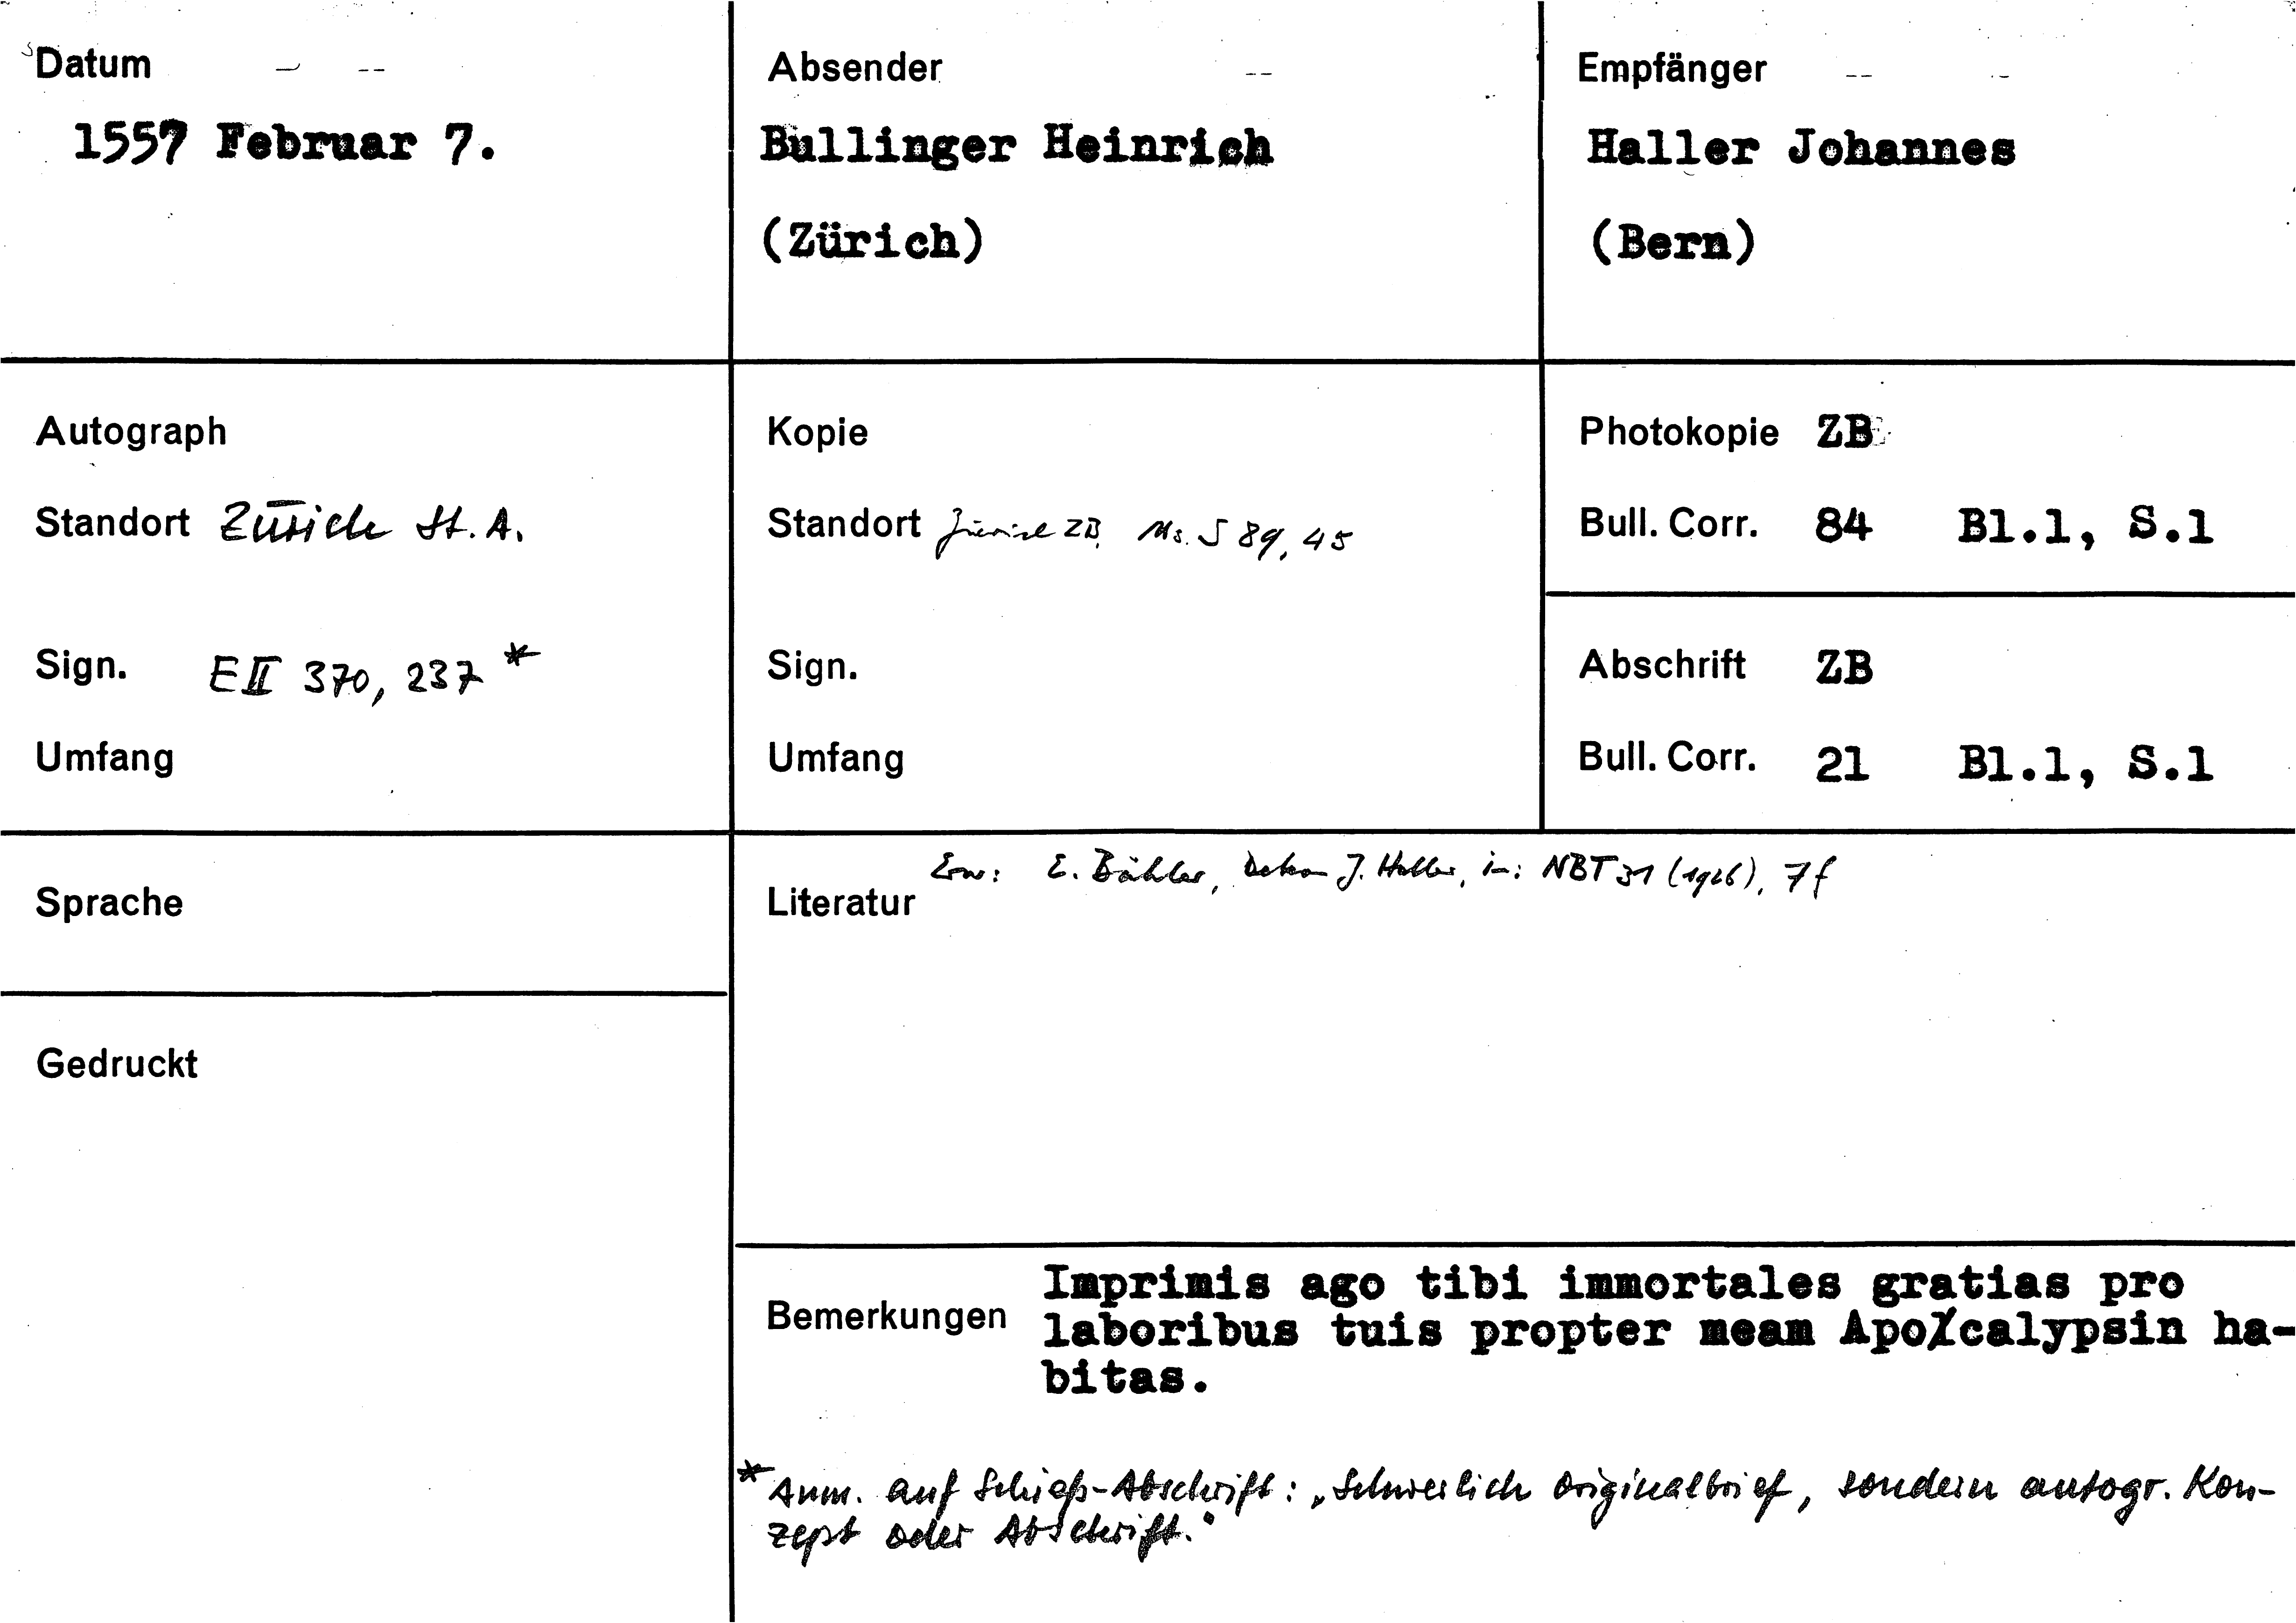 Datum
1557 Februar 7.
Absender
Bullinger Heinrich
(Zürich)
Empfänger
Haller Johannes
(Bern)
Autograph
Standort Zürich St. A.
Sign. E II 370, 237 *
Umfang
Kopie
Standort Zürich ZB, Ms. S 89, 45
Sign.
Umfang
Photokopie ZB
Bull. Corr. 84 Bl.1, S.1
Abschrift ZB
Bull. Corr. 21 Bl.1, S.1
Sprache
Gedruckt
Erw: E. Bähler, Dekan J. Haller, in: NBT 31 (1926), 7f
Literatur
Bemerkungen
Imprimis ago tibi immortales gratias pro
laboribus tuis propter meam Apocalypsin ha-
bitas.
* Anm. auf Schieß-Abschrift: „Schwerlich Originalbrief, sondern autogr. Kon-
zept oder Abschrift."